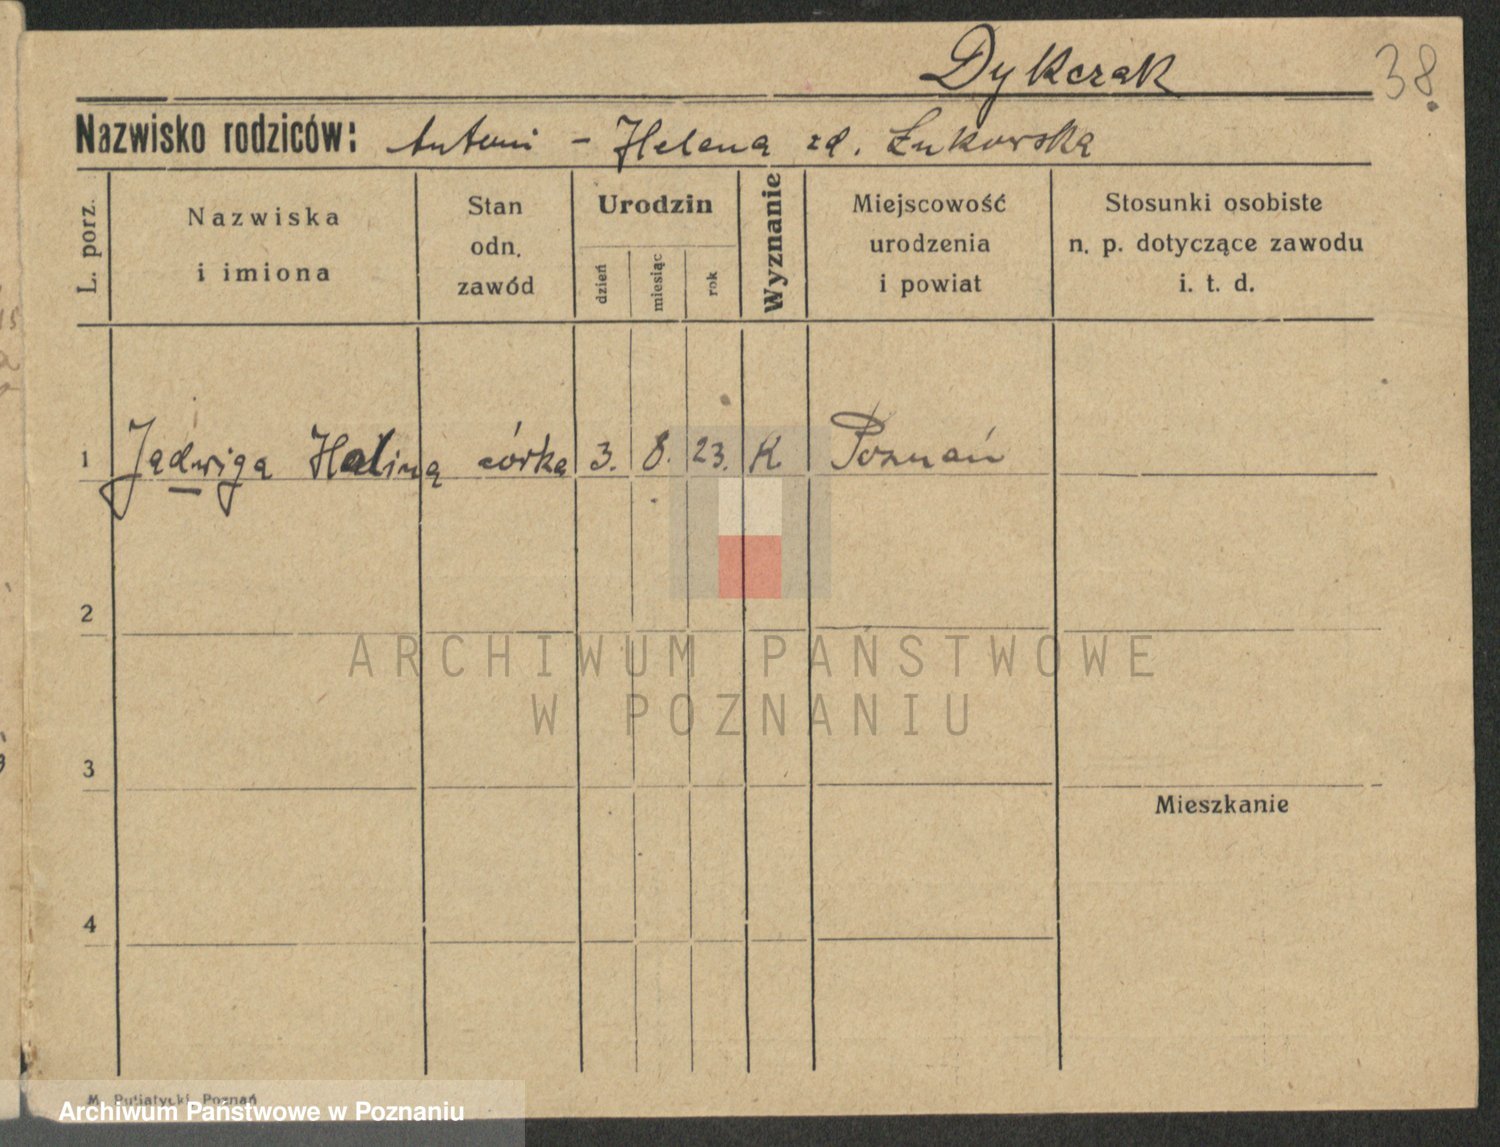 Dykczak
38.
Nazwisko rodziców: Antoni - Helena zd. Łukowska
L. porz.
Nazwiska
i imiona
Stan
odn.
zawód
Urodzin
dzień
miesiąc
rok
Wyznanie
Miejscowość
urodzenia
i powiat
Stosunki osobiste
n. p. dotyczące zawodu
i. t. d.
1 Jadwiga Halina córka 3. 8. 23. K. Poznań
2
ARCHIWUM PAŃSTWOWE
W POZNANIU
3
Mieszkanie
4
M. Putiatycki, Poznań
Archiwum Państwowe w Poznaniu